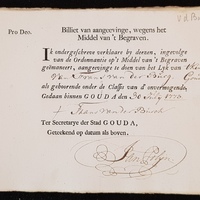 Pro Deo.
Billiet van aangeevinge, wegens het
Middel van 't Begraven.
IK ondergeschreve verklare by deesen, ingevolge
van de Ordonnantie op 't Middel van 't Begraven
geëmaneert, aangeevinge te doen van het Lyk van
van der Burg
als gehoorende onder de Classis van d'onvermogende,
Gedaan binnen GOUDA den 30 July 1773.
van der Burch
Ter Secretarye der Stad GOUDA,
Geteekend op datum als boven.